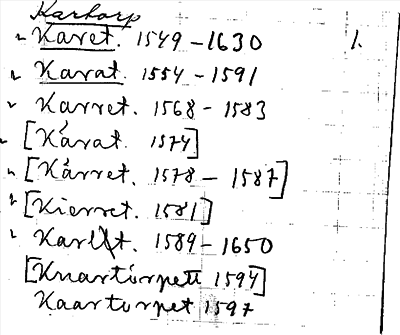 Kartorp
" Karet. 1549-1630 1.
" Karat. 1554-1591
" Karret. 1568-1583
" [Kárat. 1574]
" [Kárret. 1578-1587]
" [Kierret. 1581]
" Karlt. 1589-1650
[Knartörpett 1594]
Kaartorpet 1597